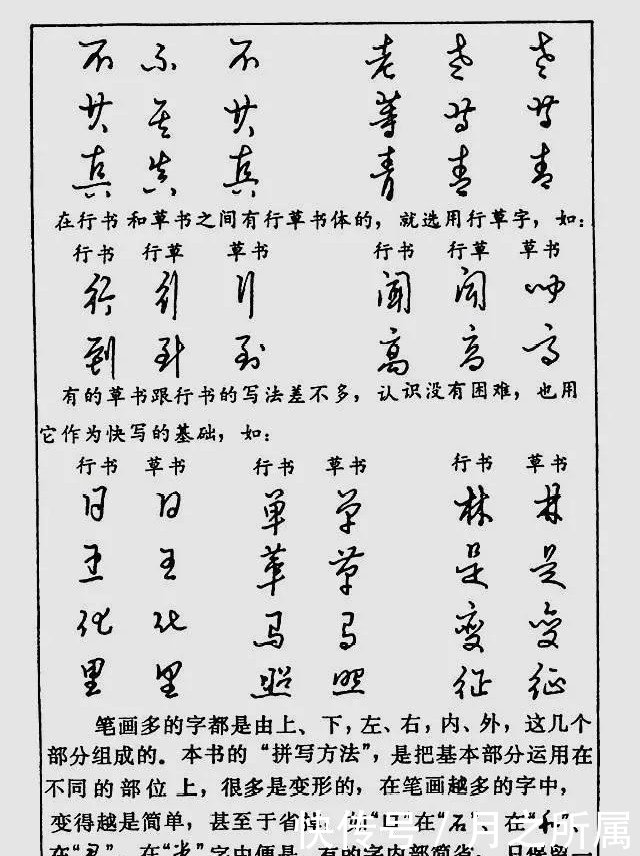 不 不 不 老 老 老
共 共 共 等 等 等
真 真 真 青 青 青
在行书和草书之间有行草书体的，就选用行草字，如：
行书 行草 草书 行书 行草 草书
行 行 行 闻 闻 闻
到 到 到 高 高 高
有的草书跟行书的写法差不多，认识没有困难，也用
它作为快写的基础，如：
行书 草书 行书 草书 行书 草书
日 日 单 单 林 林
王 王 草 草 是 是
化 化 马 马 变 变
里 里 照 照 征 征
笔画多的字都是由上、下，左、右，内、外，这几个
部分组成的。本书的“拼写方法”，是把基本部分运用在
不同的部位上，很多是变形的，在笔画越多的字中，
变得越是简单，甚至于省掉，如“口”在“石”、在“和”、
快传号 / 月之所属